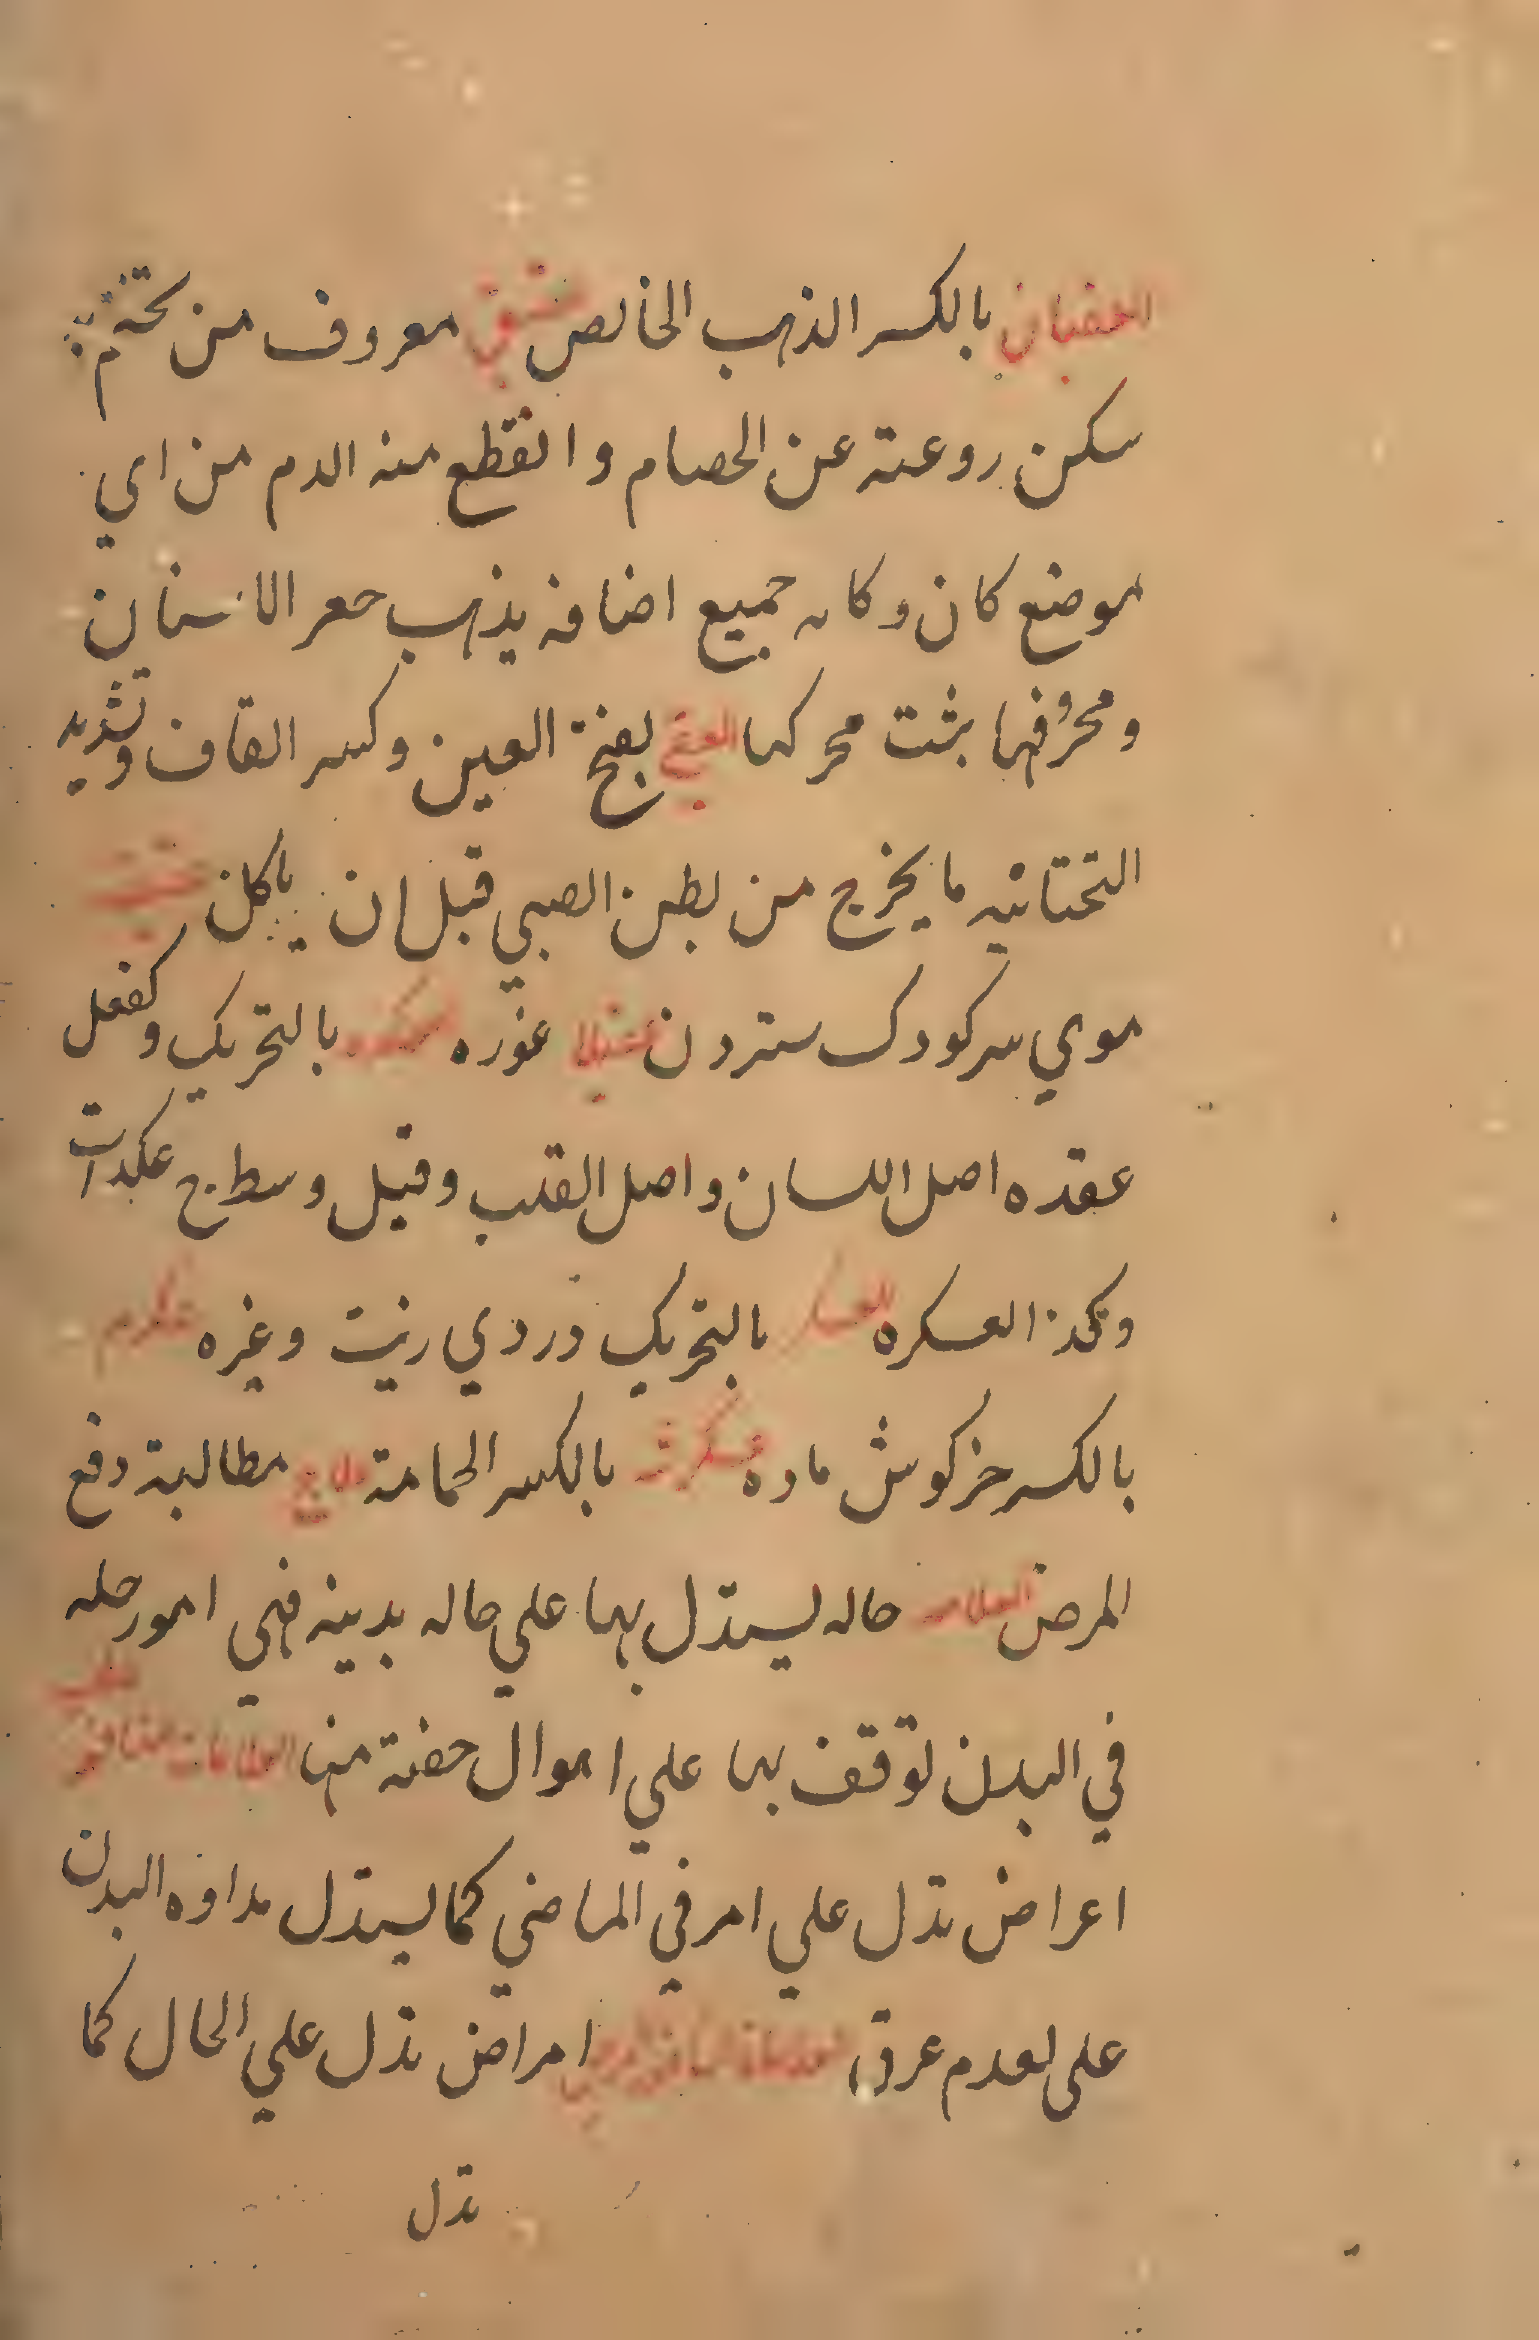 العقيان بالكسر الذهب الخالص عقيق معروف من تختم به
سكن روعته عن الخصام وانقطع منه الدم من اي
موضع كان وكا جميع اضافه يذهب حعر الاسنان
ومحروفها يثت محركها العقي بفتح العين وكسر القاف وتشديد
التحتانيه ما يخرج من بطن الصبي قبل ان ياكل عقيقه
موي سر كودك ستردن غوره عكده بالتحريك وكفعل
عقده اصل اللسان واصل القلب وقيل وسطه ج عكدات
وكذا العكره العكر بالتحريك دردي زيت وغيره
بالكسر خركوش ماده عكرشه بالكسر الحمامة علاج مطالبة دفع
المرض العلامه حاله يستدل بها علي حاله بدنيه فهي امور حله
في البدن توقف بها علي احوال خفية منها العلامات
اعراض تدل علي امر في الماضي كما يستدل نداوه البدن
على تعدم عرق امراض تدل علي الحال كما
تدل